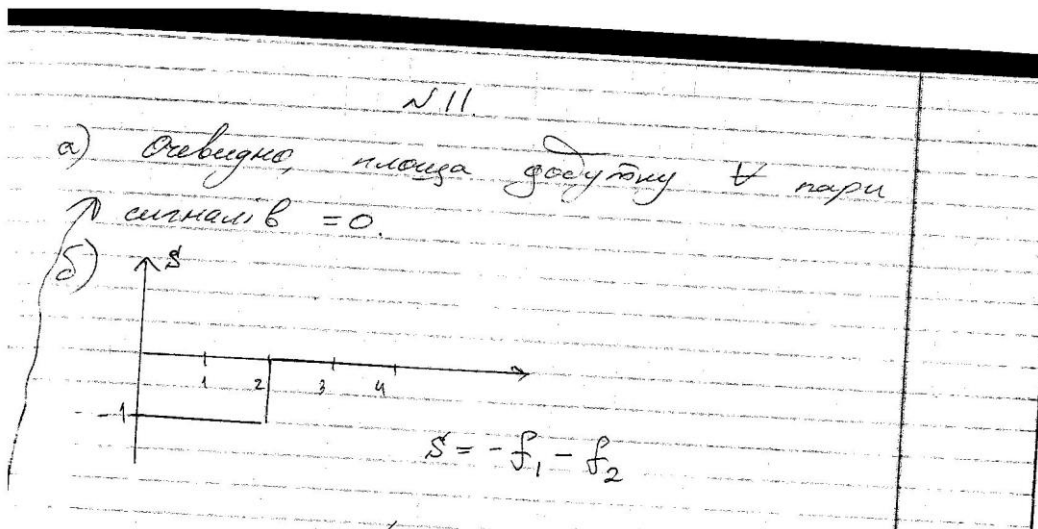 N 11.
а) Очевидно, площа добутку ∀ пари
сигналів = 0.
б)
S
1 2 3 4
-1
S = -f₁ - f₂